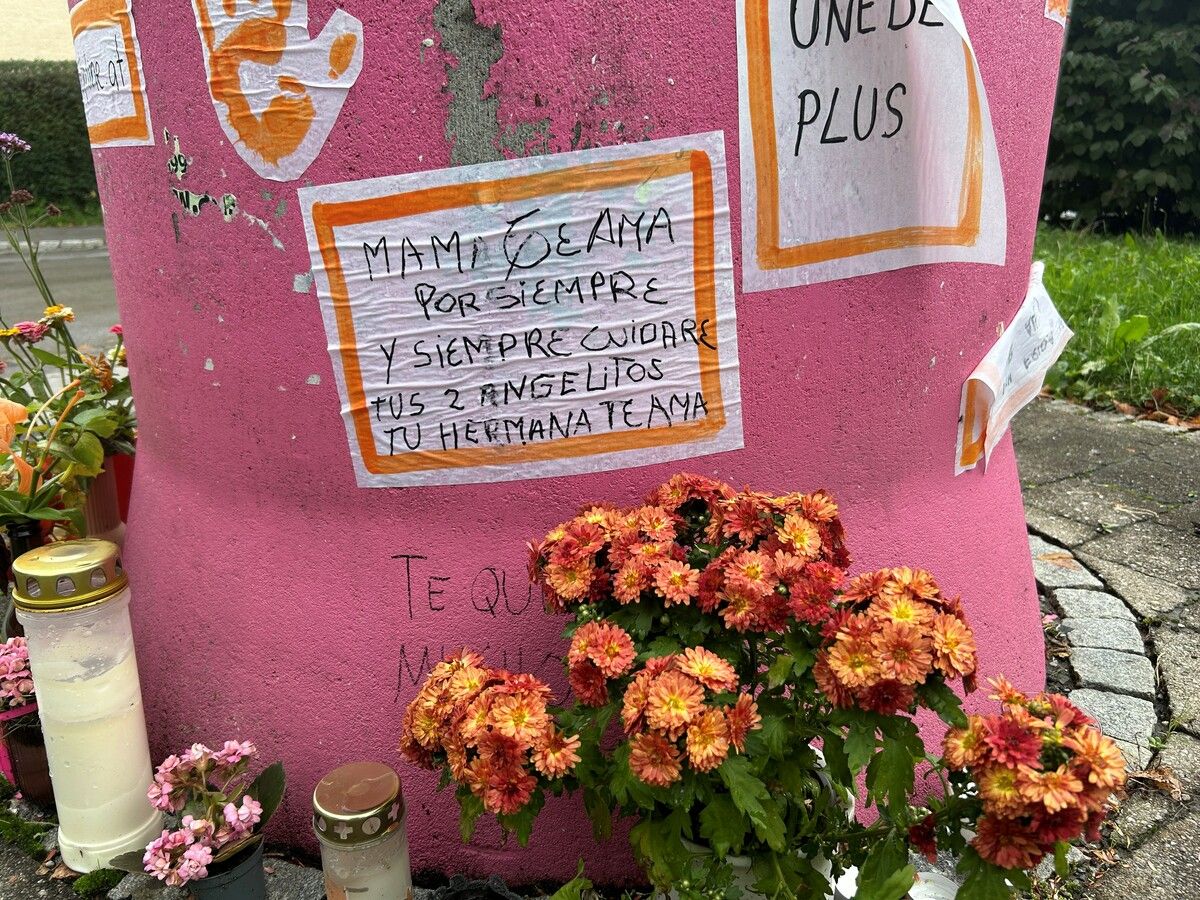 UNE DE
PLUS
MAMI TE AMA
POR SIEMPRE
Y SIEMPRE CUIDARE
TUS 2 ANGELITOS
TU HERMANA TE AMA
TE QU
MUCHO